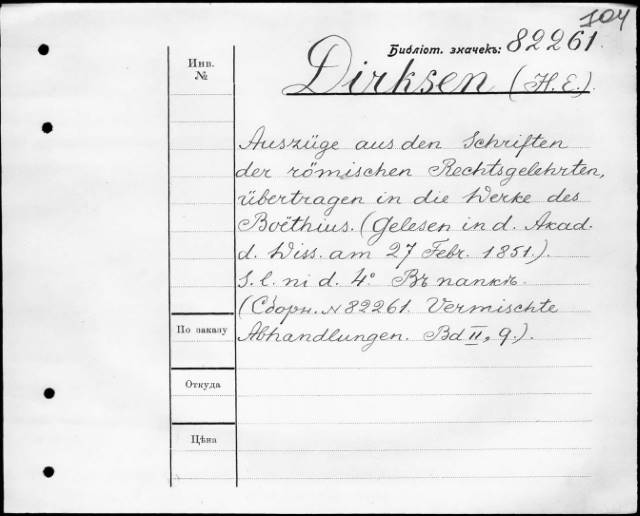 104
Библіот. значекъ: 82261.
Инв.
№
Dirksen (H. E.).
Auszüge aus den Schriften
der römischen Rechtsgelehrten,
übertragen in die Werke des
Boëthius. (Gelesen in d. Akad.
d. Wiss. am 27 Febr. 1851.).
S. l. ni d. 4º. Въ папкѣ.
(Сборн. № 82261. Vermischte
Abhandlungen. Bd II, 9.).
По заказу
Откуда
Цѣна